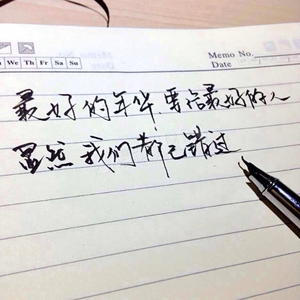 Memo No.
We Th Fr Sa Su
Date
最好的年华,要给最好的人
虽然我们都已错过